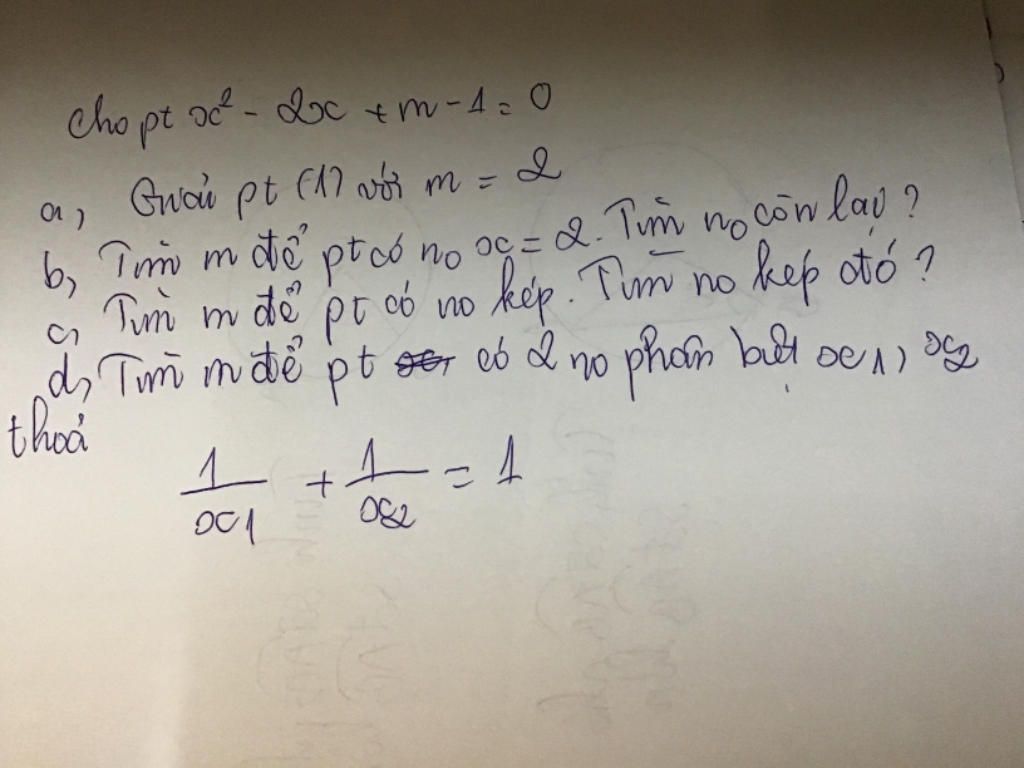 Cho pt x² - 2x + m - 1 = 0
a, Giải pt (1) với m = 2
b, Tìm m để pt có no x = 2. Tìm no còn lại ?
c, Tìm m để pt có no kép. Tìm no kép đó ?
d, Tìm m để pt có 2 no phân biệt x1, x2
thoả
1/x1 + 1/x2 = 1